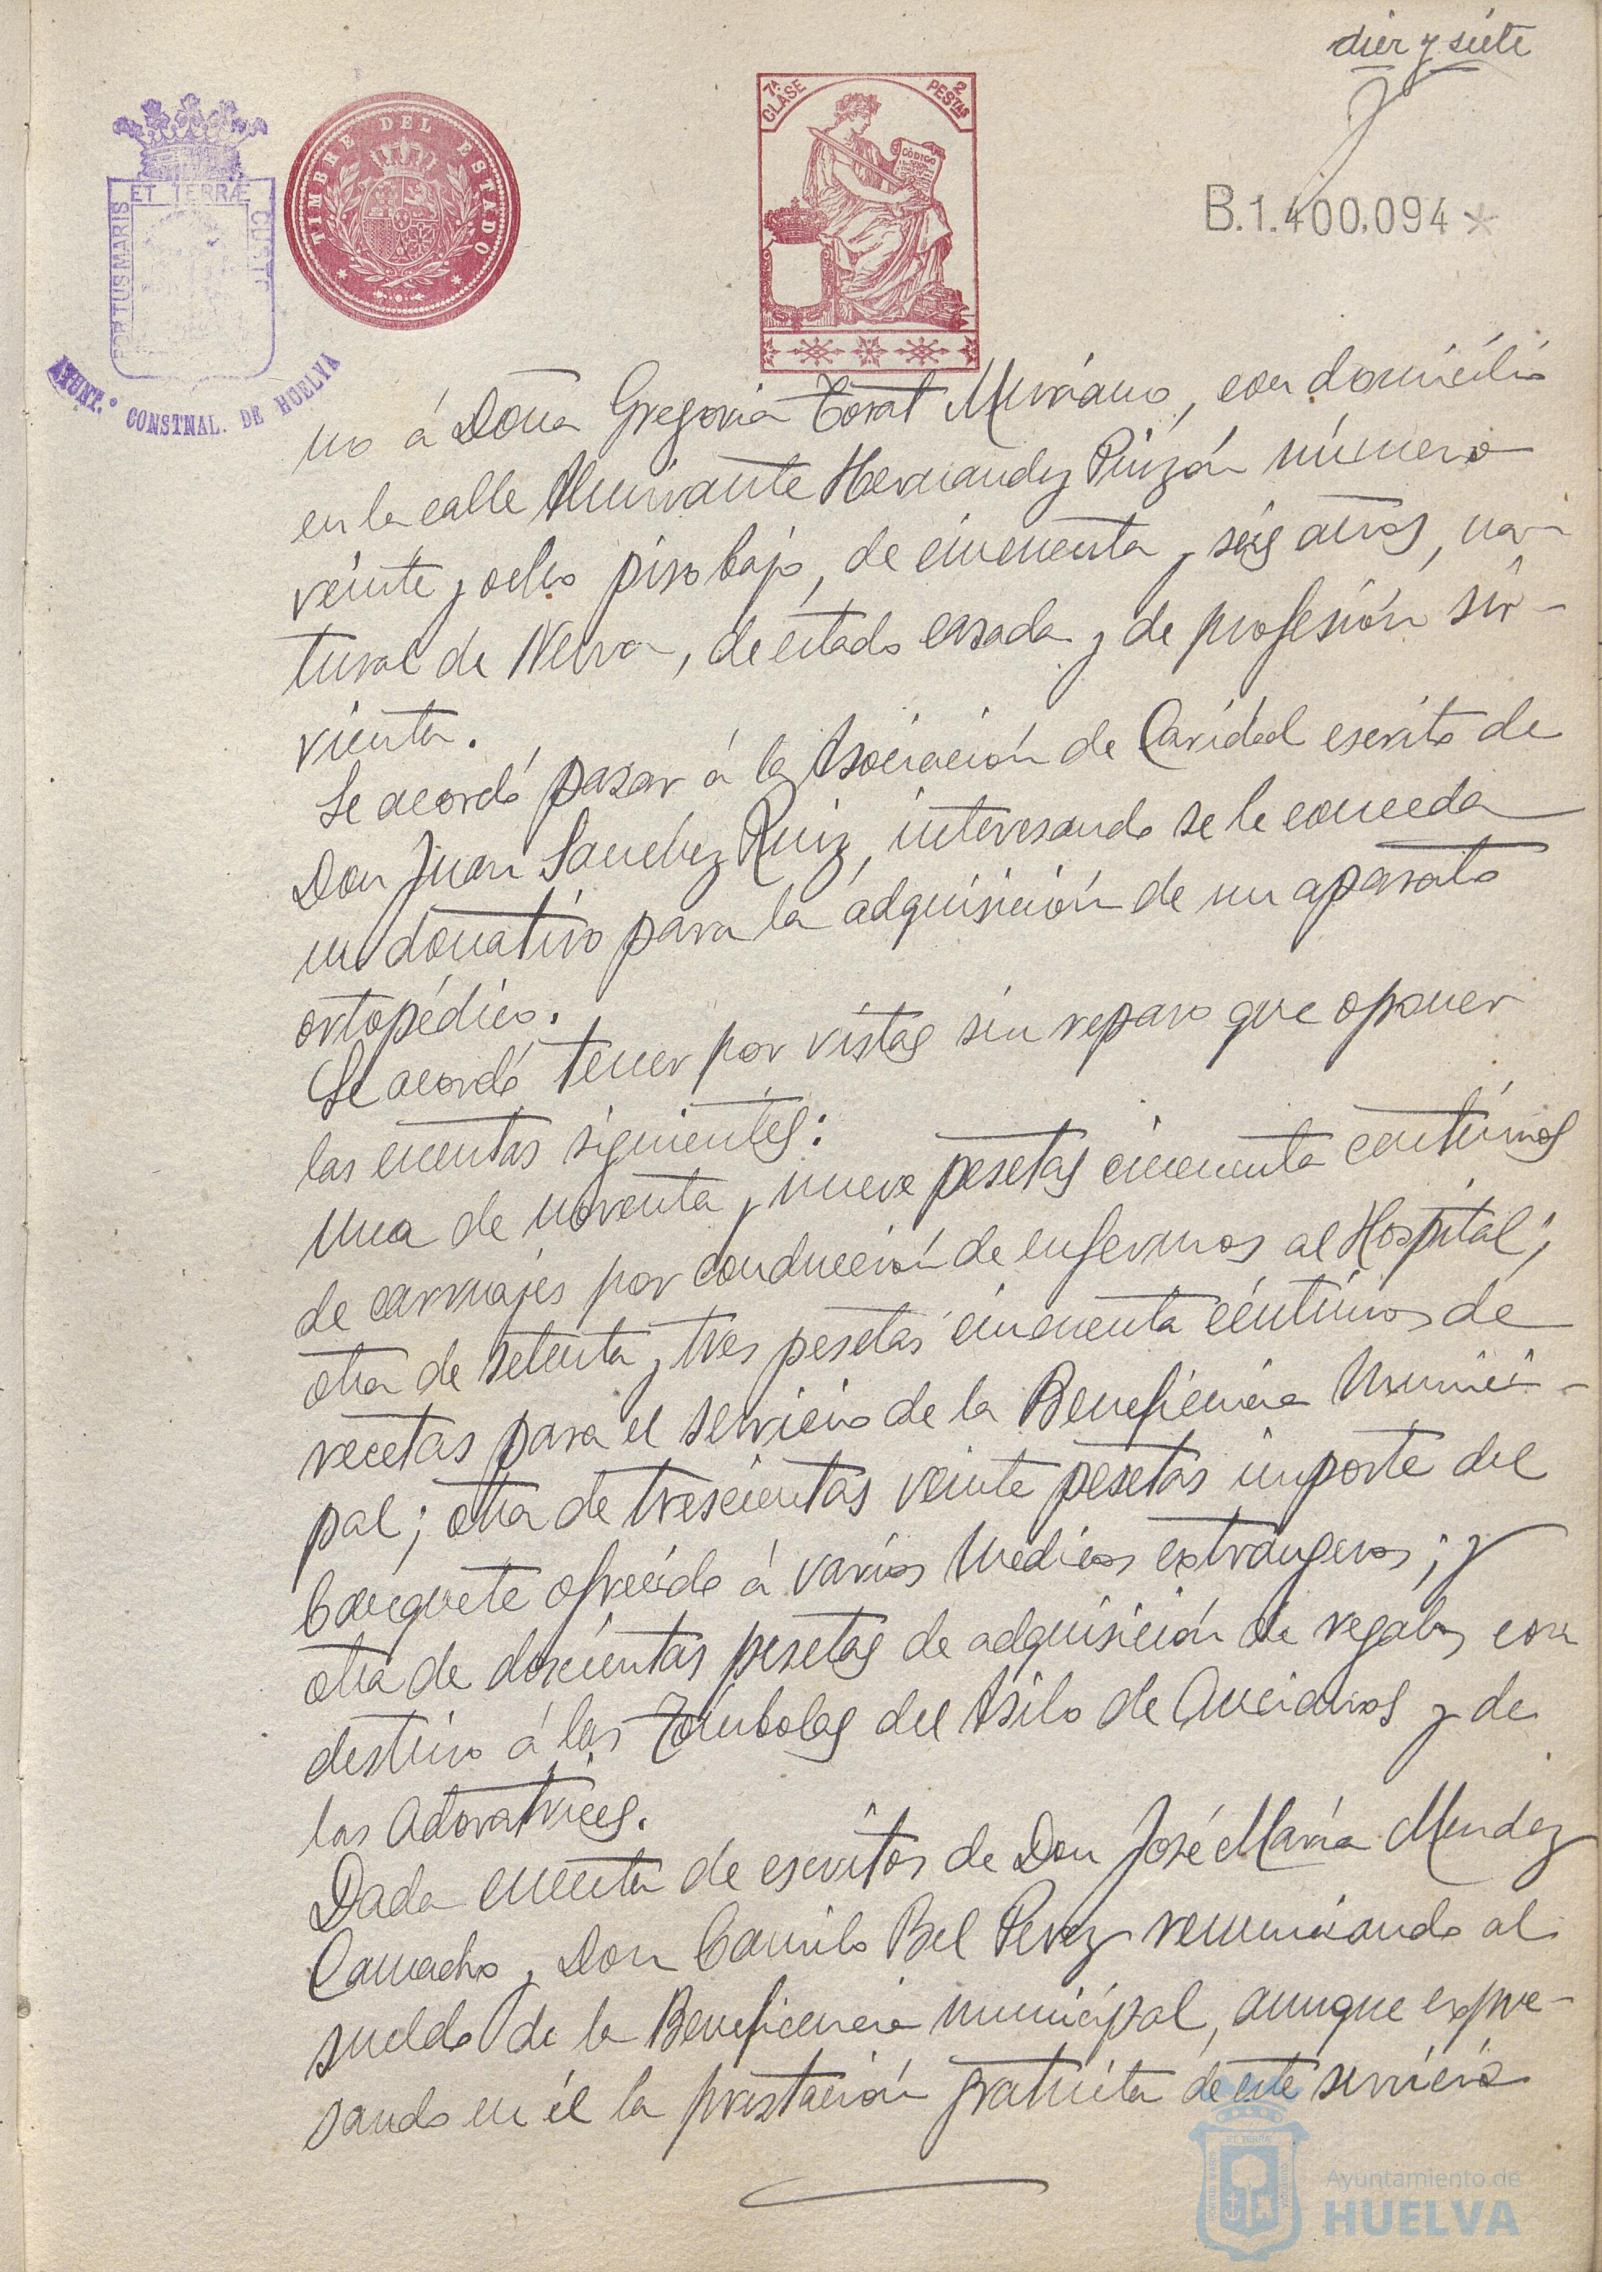 diez y siete
7ª CLASE
2 PESTAS
CÓDIGO
TIMBRE DEL ESTADO
ET TERRÆ
PORTUS MARIS
CUSTO
AYUNT.º CONSTNAL. DE HUELVA
B.1.400.094 *
no á Doña Gregoria Torat, con domicilio
en la calle Almirante Hernandez Pinzón número
veinte y ocho piso bajo, de cincuenta y seis años, na-
tural de Nerva, de estado casada y de profesión sir-
vienta.
Se acordó pasar á la Asociación de Caridad escrito de
Don Juan Sanchez Ruiz, interesando se le conceda
un donativo para la adquisición de un aparato
ortopédico.
Se acordó tener por vistas sin reparo que oponer
las cuentas siguientes:
Una de noventa y nueve pesetas cincuenta centimos
de carruajes por conducción de enfermos al Hospital;
otra de setenta y tres pesetas cincuenta céntimos de
recetas para el servicio de la Beneficencia Munici-
pal; otra de trescientas veinte pesetas importe del
banquete ofrecido á varios Médicos extrangeros; y
otra de doscientas pesetas de adquisición de regalos con
destino á las Tómbolas del Asilo de Ancianos y de
las Adoratrices.
Dada cuenta de escritos de Don José María Mendez
Camacho y Don Camilo Bel Perez renunciando al
sueldo de la Beneficencia municipal, aunque expre-
sando en él la prestación gratuita de este servicio
Ayuntamiento de
HUELVA